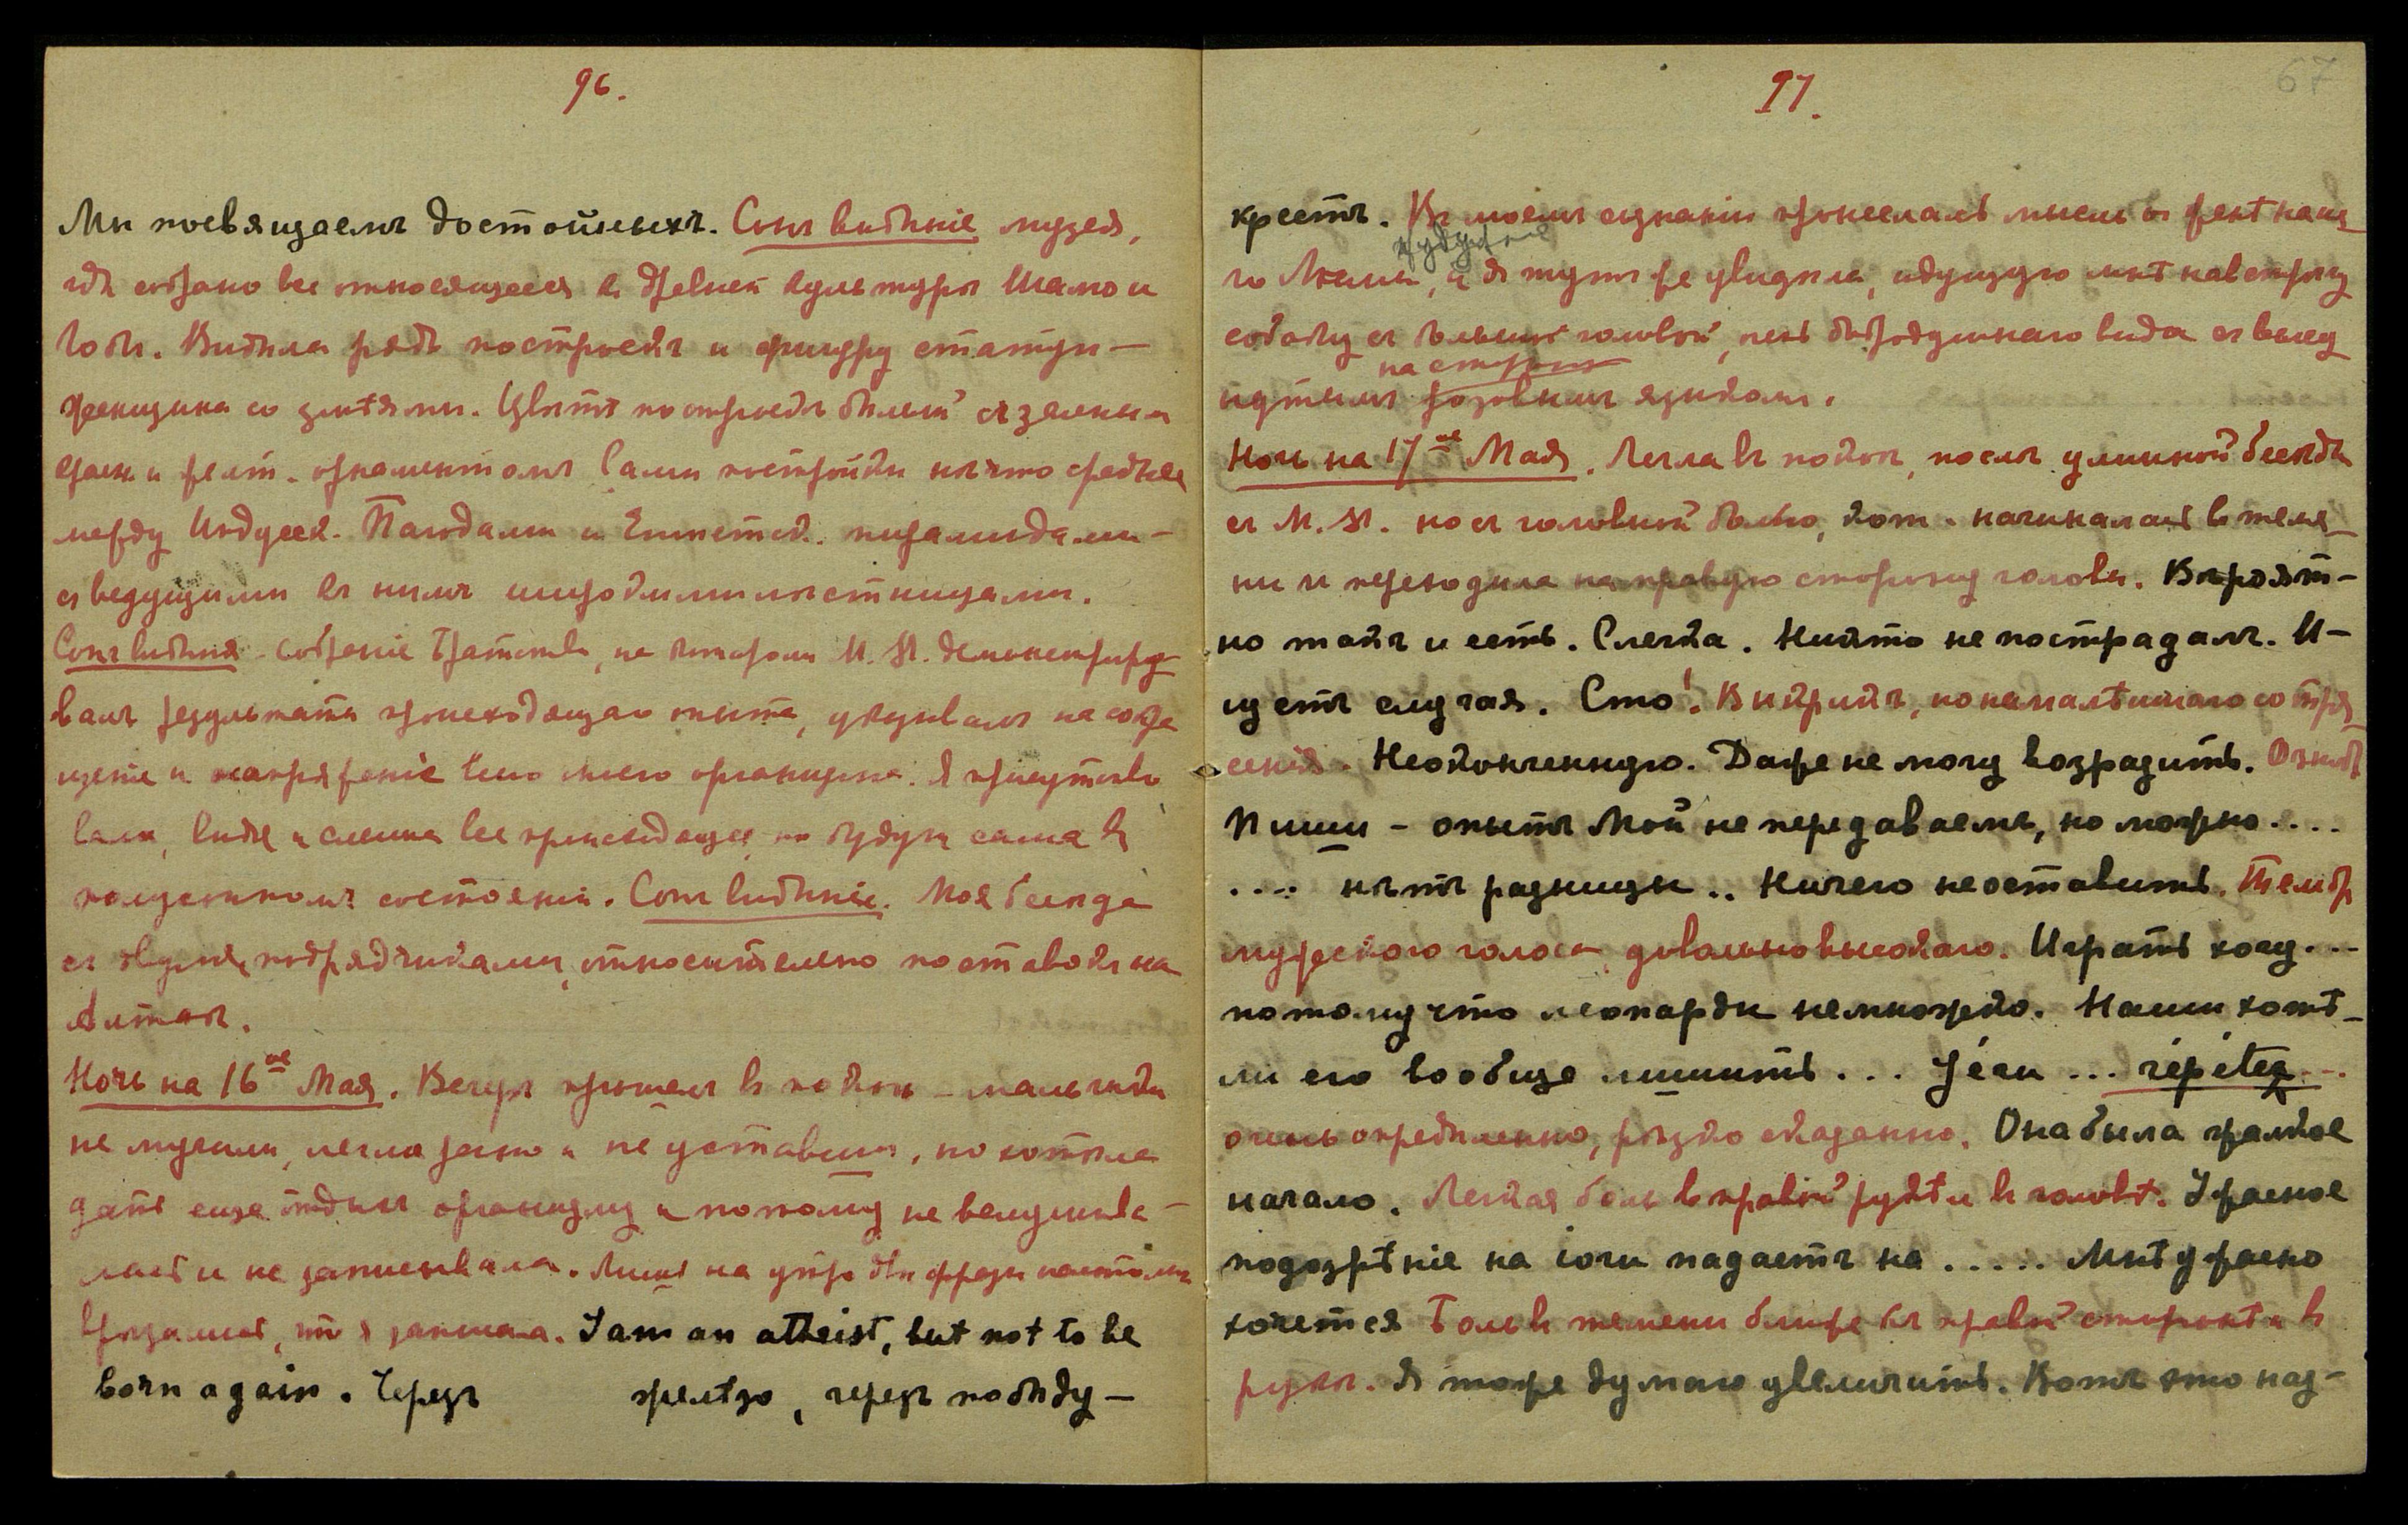 96.
Мы посвящаемъ достойныхъ. Сонъ видѣніе музея,
гдѣ собрано все относящееся къ древней культуры Шамо и
Гоби. Видѣла рядъ построекъ и фигуру статуи —
женщина со змѣями. Цвѣтъ построекъ бѣлый съ зелеными
красн. и желт. орнаментомъ Сами постройки нѣчто среднее
между Индусск. Пагодами и Египетск. пирамидами —
съ ведущими къ нимъ широкими лѣстницами.
Сонъ видѣніе — собраніе Братства, на которомъ М. М. демонстриро-
валъ результаты происходящаго опыта, указывалъ на
и напряженіе всего моего организма. Я присутство
вала, видя и слыша все происходящее, но будучи сама въ
полусонномъ состояніи. Сонъ видѣніе. Моя бесѣда
съ двумя подрядчиками, относительно поставокъ на
Алтаѣ.
Ночь на 16ое Мая. Вечеръ прошелъ въ покоѣ — мальчики
не шумѣли, легла рано и не уставши, но хотѣла
дать еще отдыхъ организму и потому не вслушива-
лась и не записывала. Лишь на утро двѣ фразы настолько
врѣзались, что я записала. I am an atheist, but not to be
born again. Черезъ желѣзо, черезъ побѣду —
97.
67
крестъ. Въ моемъ сознаніи пронеслась мысль о
го Ламы, и я тутъ же увидѣла, идущую мнѣ навстрѣчу
собаку съ большой головой, очень добродушнаго вида съ высу
на сторону
нутымъ розовымъ языкомъ.
Ночь на 17ое Мая. Легла въ покоѣ, послѣ длинной бесѣды
съ М. М. но съ головной болью, кот. начиналась въ темя-
ни и переходила на правую сторону головы. Вѣроят-
но такъ и есть. Слегка. Никто не пострадалъ. И-
щетъ случая. Сто! Вскрикъ, но ни малѣйшаго сотря
сенія. Неоконченную. Даже не могу возразить. Ознобъ
Пиши — опытъ Мой не передаваемъ, но можно....
.... нѣтъ разницы .. Ничего не оставить. Тембръ
мужского голоса, довольно высокаго. Играть хочу...
потому что леопарды немножко. Наши хотѣ-
ли его вообще лишить... Іеги ... répétez ...
очень опредѣленно, рѣзко сказанно. Она была громкое
начало. Легкая боль въ правой рукѣ и въ головѣ. Ужасное
подозрѣніе на іоги падаетъ на ..... Мнѣ ужасно
хочется Боль въ темени ближе къ правой сторонѣ и въ
рукѣ. Я тоже думаю увеличить. Вотъ это наз-